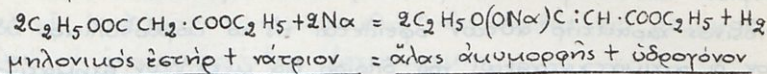 2C₂H₅OOC CH₂·COOC₂H₅+2Nα = 2C₂H₅O(ONα)C:CH·COOC₂H₅+H₂
μηλονικός ἐστήρ + νάτριον = ἅλας ἀκυμορφῆς + ὑδρογόνον